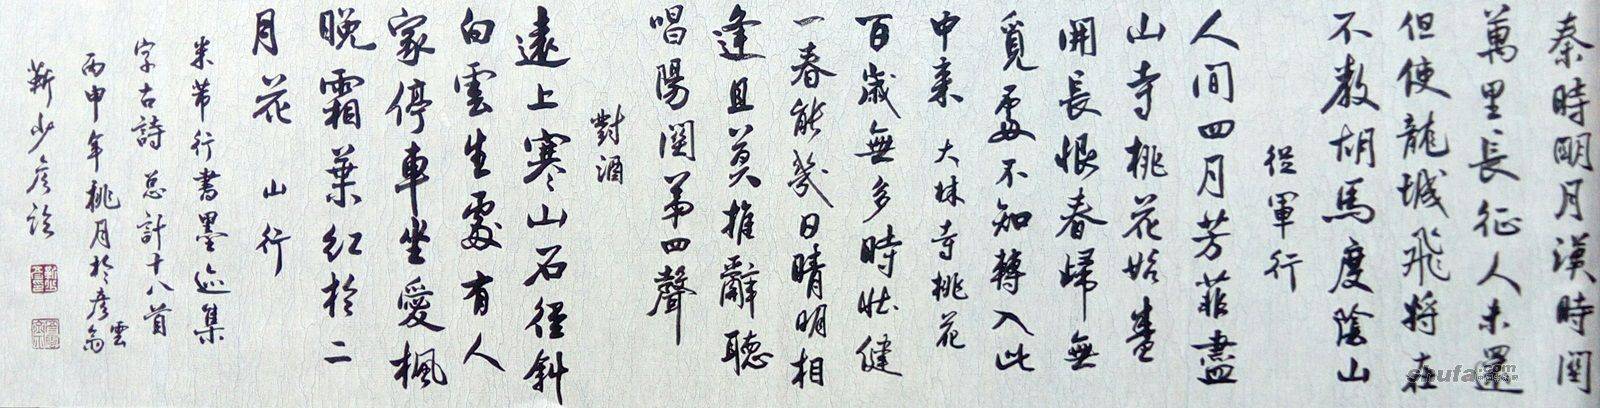 秦時明月漢時関
萬里長征人未還
但使龍城飛將在
不教胡馬度陰山
從軍行
人間四月芳菲盡
山寺桃花始盛
開長恨春歸無
覓處不知轉入此
中来 大林寺桃花
百歲無多時壮健
一春能幾日晴明相
逢且莫推辭聽
唱陽関第四聲
對酒
遠上寒山石徑斜
白雲生處有人
家停車坐愛楓
晚霜葉紅於二
月花 山行
米芾行書墨迹集
字古詩 总計十八首
丙申年桃月於彦雲斋
靳少彦
shufa.com